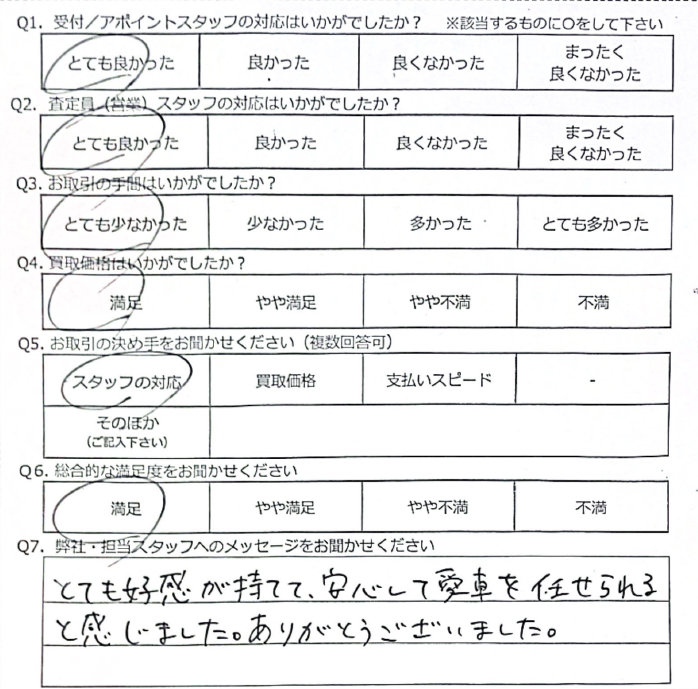 Q1. 受付／アポイントスタッフの対応はいかがでしたか？ ※該当するものに〇をして下さい
とても良かった 良かった 良くなかった まったく
良くなかった
Q2. 査定員（営業）スタッフの対応はいかがでしたか？
とても良かった 良かった 良くなかった まったく
良くなかった
Q3. お取引の手間はいかがでしたか？
とても少なかった 少なかった 多かった とても多かった
Q4. 買取価格はいかがでしたか？
満足 やや満足 やや不満 不満
Q5. お取引の決め手をお聞かせください（複数回答可）
スタッフの対応 買取価格 支払いスピード -
そのほか
（ご記入下さい）
Q6. 総合的な満足度をお聞かせください
満足 やや満足 やや不満 不満
Q7. 弊社・担当スタッフへのメッセージをお聞かせください
とても好感が持てて、安心して愛車を任せられる
と感じました。ありがとうございました。